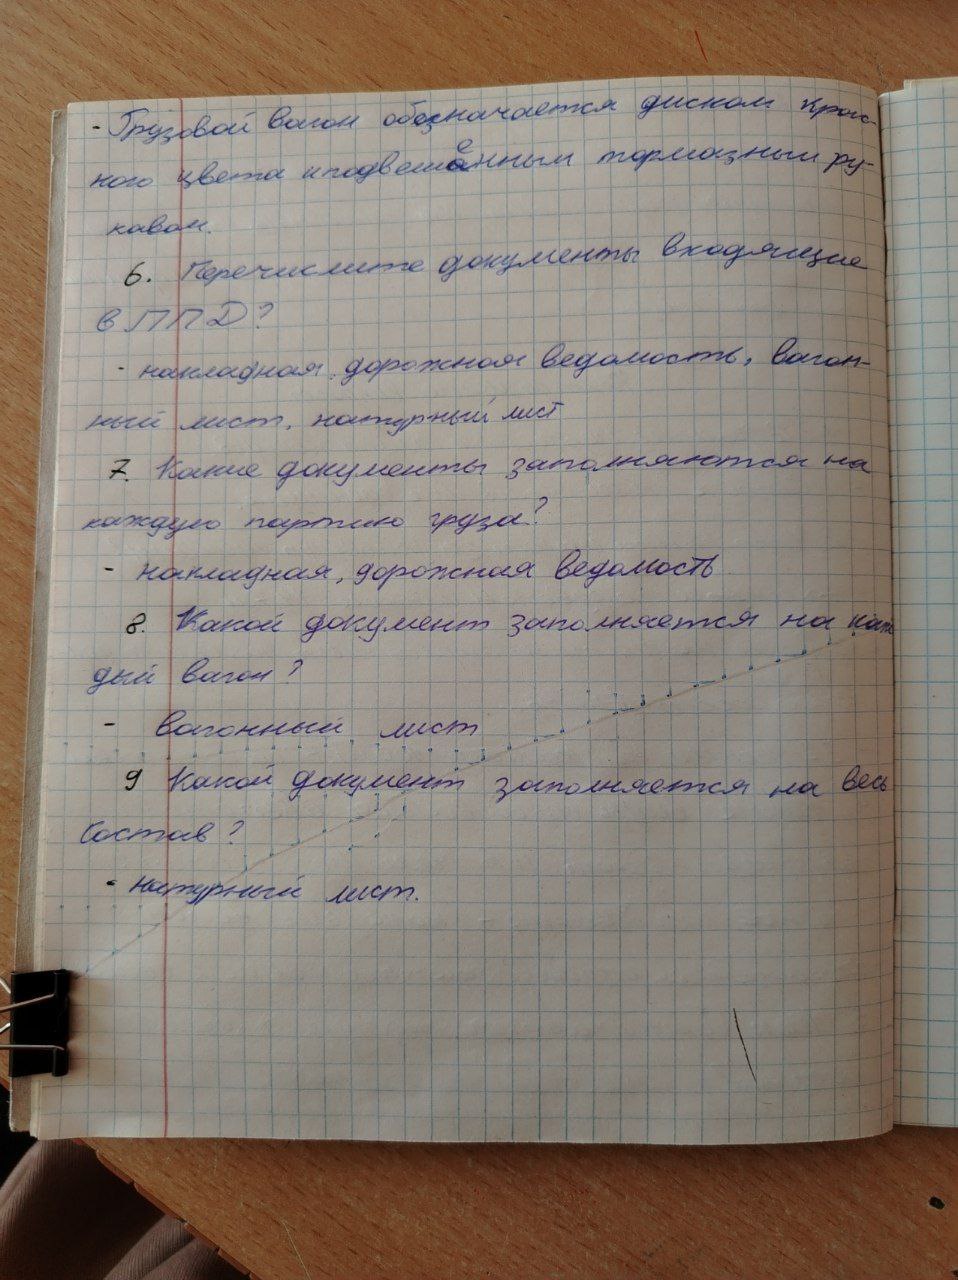 - Грузовой вагон обозначается диском крас-
ного цвета и подвешенным тормазным ру-
кавом.
6. Перечислите документы входящие
в ППД?
- накладная, дорожная ведомость, вагон-
ный лист, натурный лист
7. Какие документы заполняются на
каждую партию груза?
- накладная, дорожная ведомость
8. Какой документ заполняется на каж
дый вагон?
- вагонный лист
9 Какой документ заполняется на весь
состав?
- натурный лист.